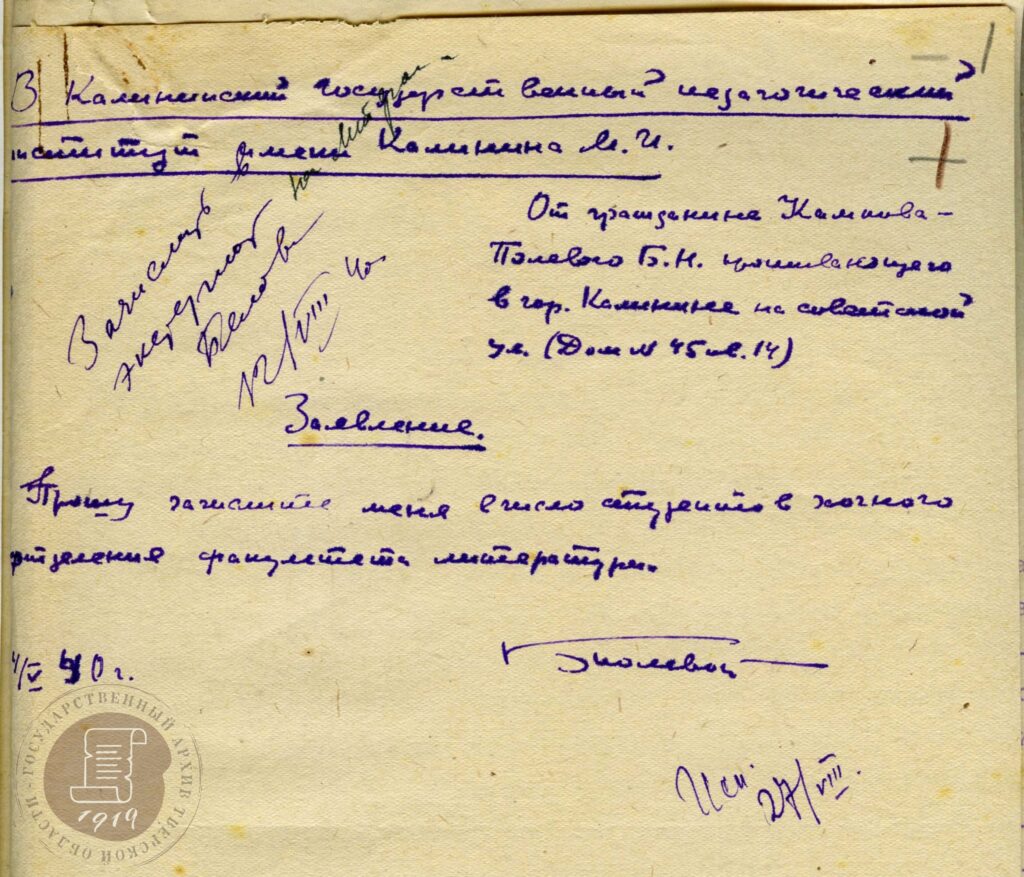 В Калининский государственный педагогический
институт имени Калинина М. И.
От гражданина Кампова-
Полевого Б. Н. проживающего
в гор. Калинине на советской
ул. (Дом N 45 кв. 14)
Зачислить в
экстернат
на литфак
Белов
12/VIII 40
Заявление.
Прошу зачислить меня в число студентов заочного
отделения факультета литературы.
4/V 40 г.
Б Полевой
Исп. 27/VIII.
ГОСУДАРСТВЕННЫЙ АРХИВ ТВЕРСКОЙ ОБЛАСТИ
1919